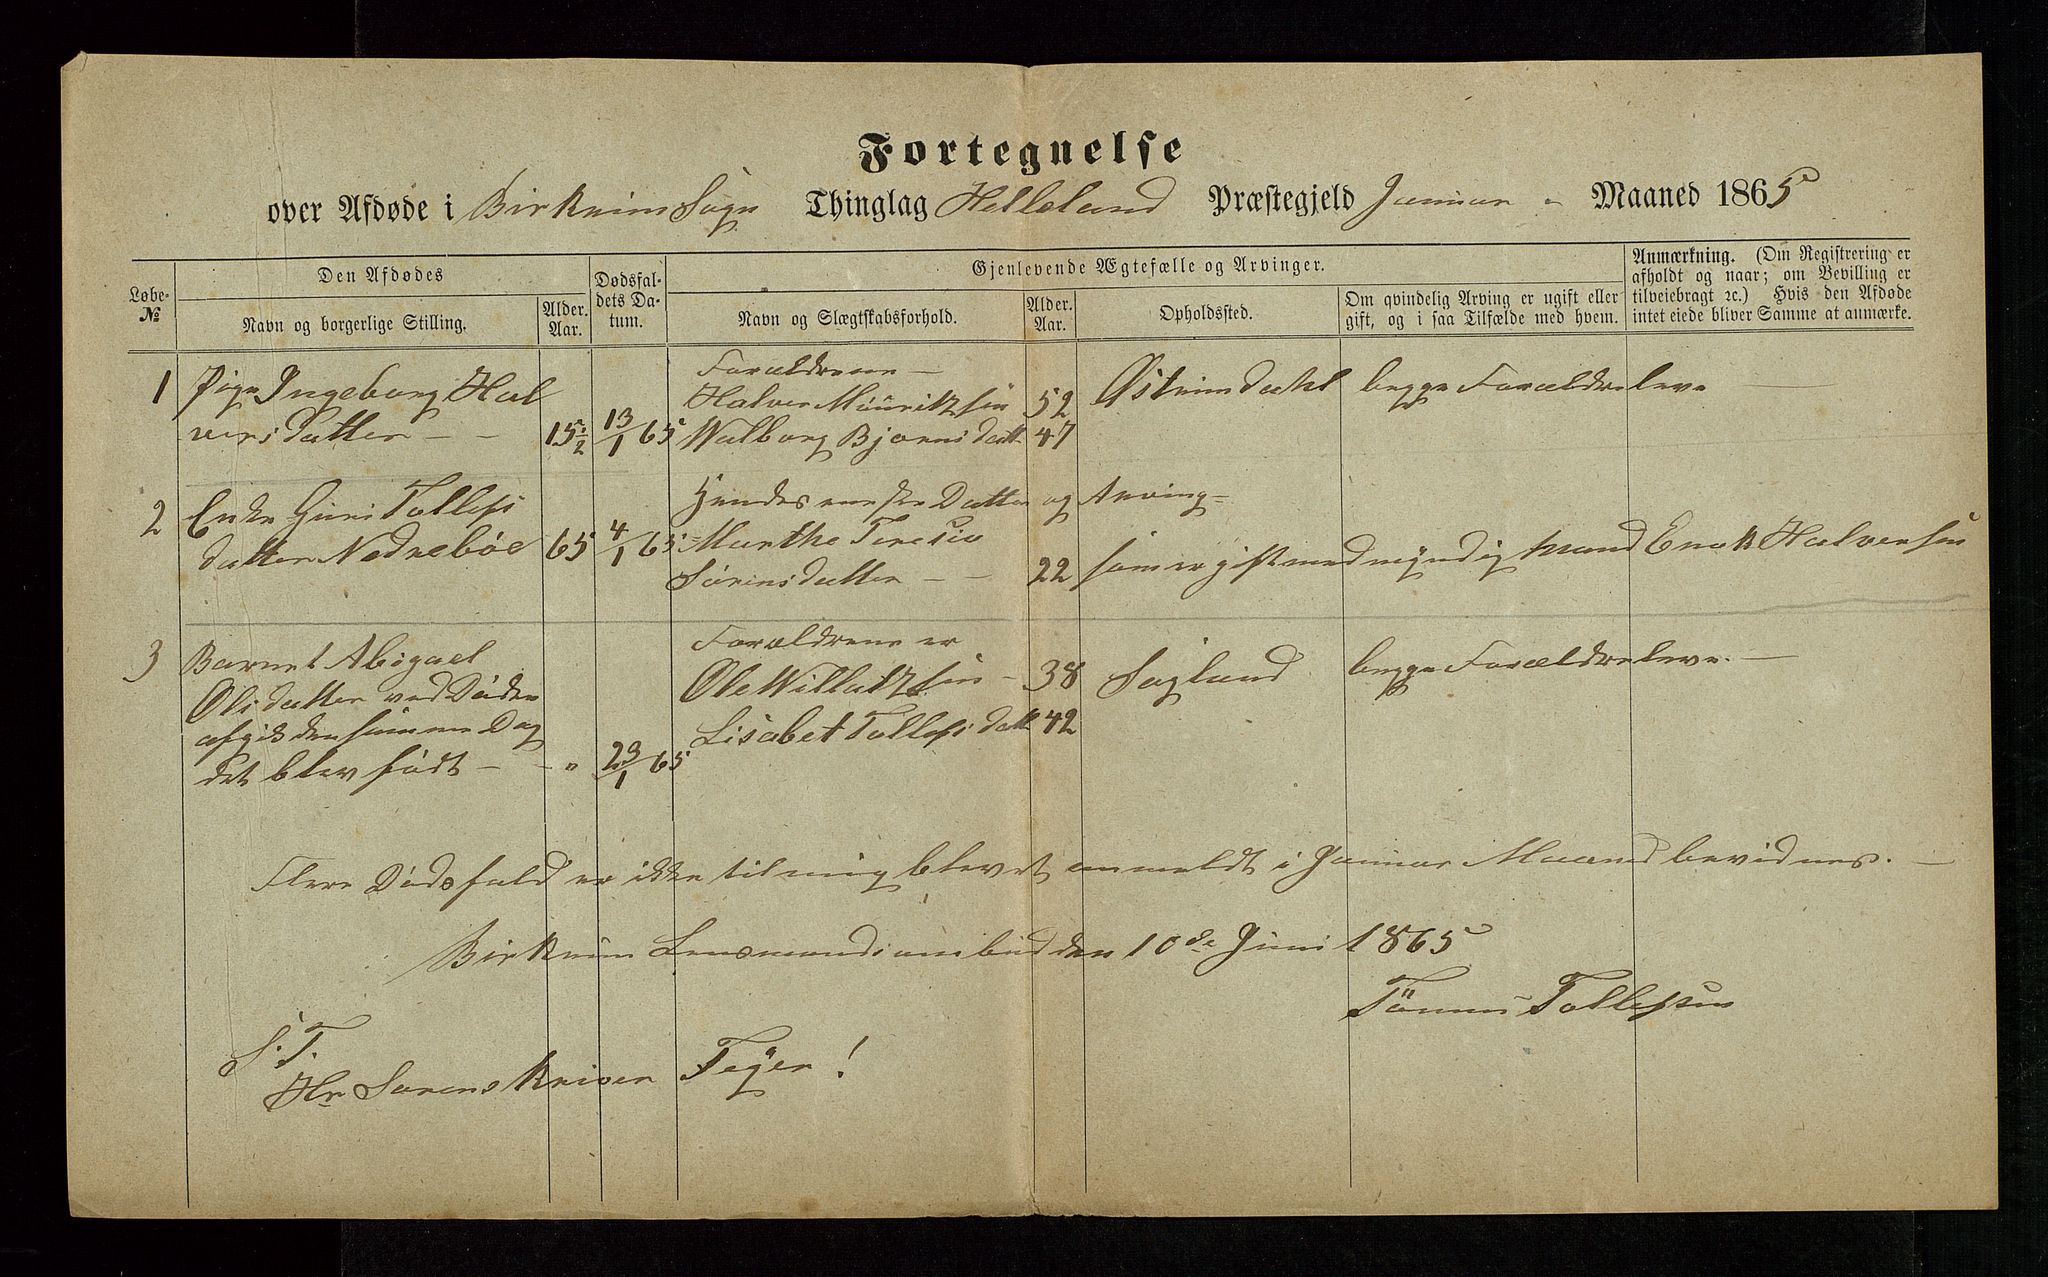 Fortegnelse
over Afdøde i Birkrim Sogn Thinglag Helleland Præstegjeld Januar - Maaned 1865
Løbe-
No
Den Afdødes
Navn og borgerlige Stilling.
Alder.
Aar.
Dødsfal-
dets Da-
tum.
Gjenlevende Ægtefælle og Arvinger.
Navn og Slægtskabsforhold.
Alder.
Aar.
Opholdssted.
Om qvindelig Arving er ugift eller
gift, og i saa Tilfælde med hvem.
Anmærkning. (Om Registrering er
afholdt og naar; om Bevilling er
tilveiebragt ꝛc.) Hvis den Afdøde
intet eiede bliver Samme at anmærke.
1 Pige Ingeborg Hal
versdatter - - 15 1/2 13/1 65
Forældrene -
Halvor Mauritzsen 52 Østrimdahl begge Forældre leve
Walborg Bjørnsdatt 47
2 Enke Guri Tollefs
datter Nedrebøe 65 4/1 65
Hendes eneste Datter og Arving =
Marthe Teresia
Sørensdatter - - 22 som er gift med myndig Mand Enok Halvorsen
3 Barnet Abigael
Olsdatter ved Døden
afgik den samme Dag
det blev født - - " 23/1 65
Forældrene er
Ole Willatzsen - 38 Sagland begge Forældre leve. -
Lisabet Tollefsdatt 42
Flere Dødsfald er ikke til mig blevet anmeldt i Januar Maaned bevidnes. -
Birkrim Lensmandsombud den 10de Juni 1865
Tønnes Tollefsen
S. T.
Hr Sorenskriver Feyer!